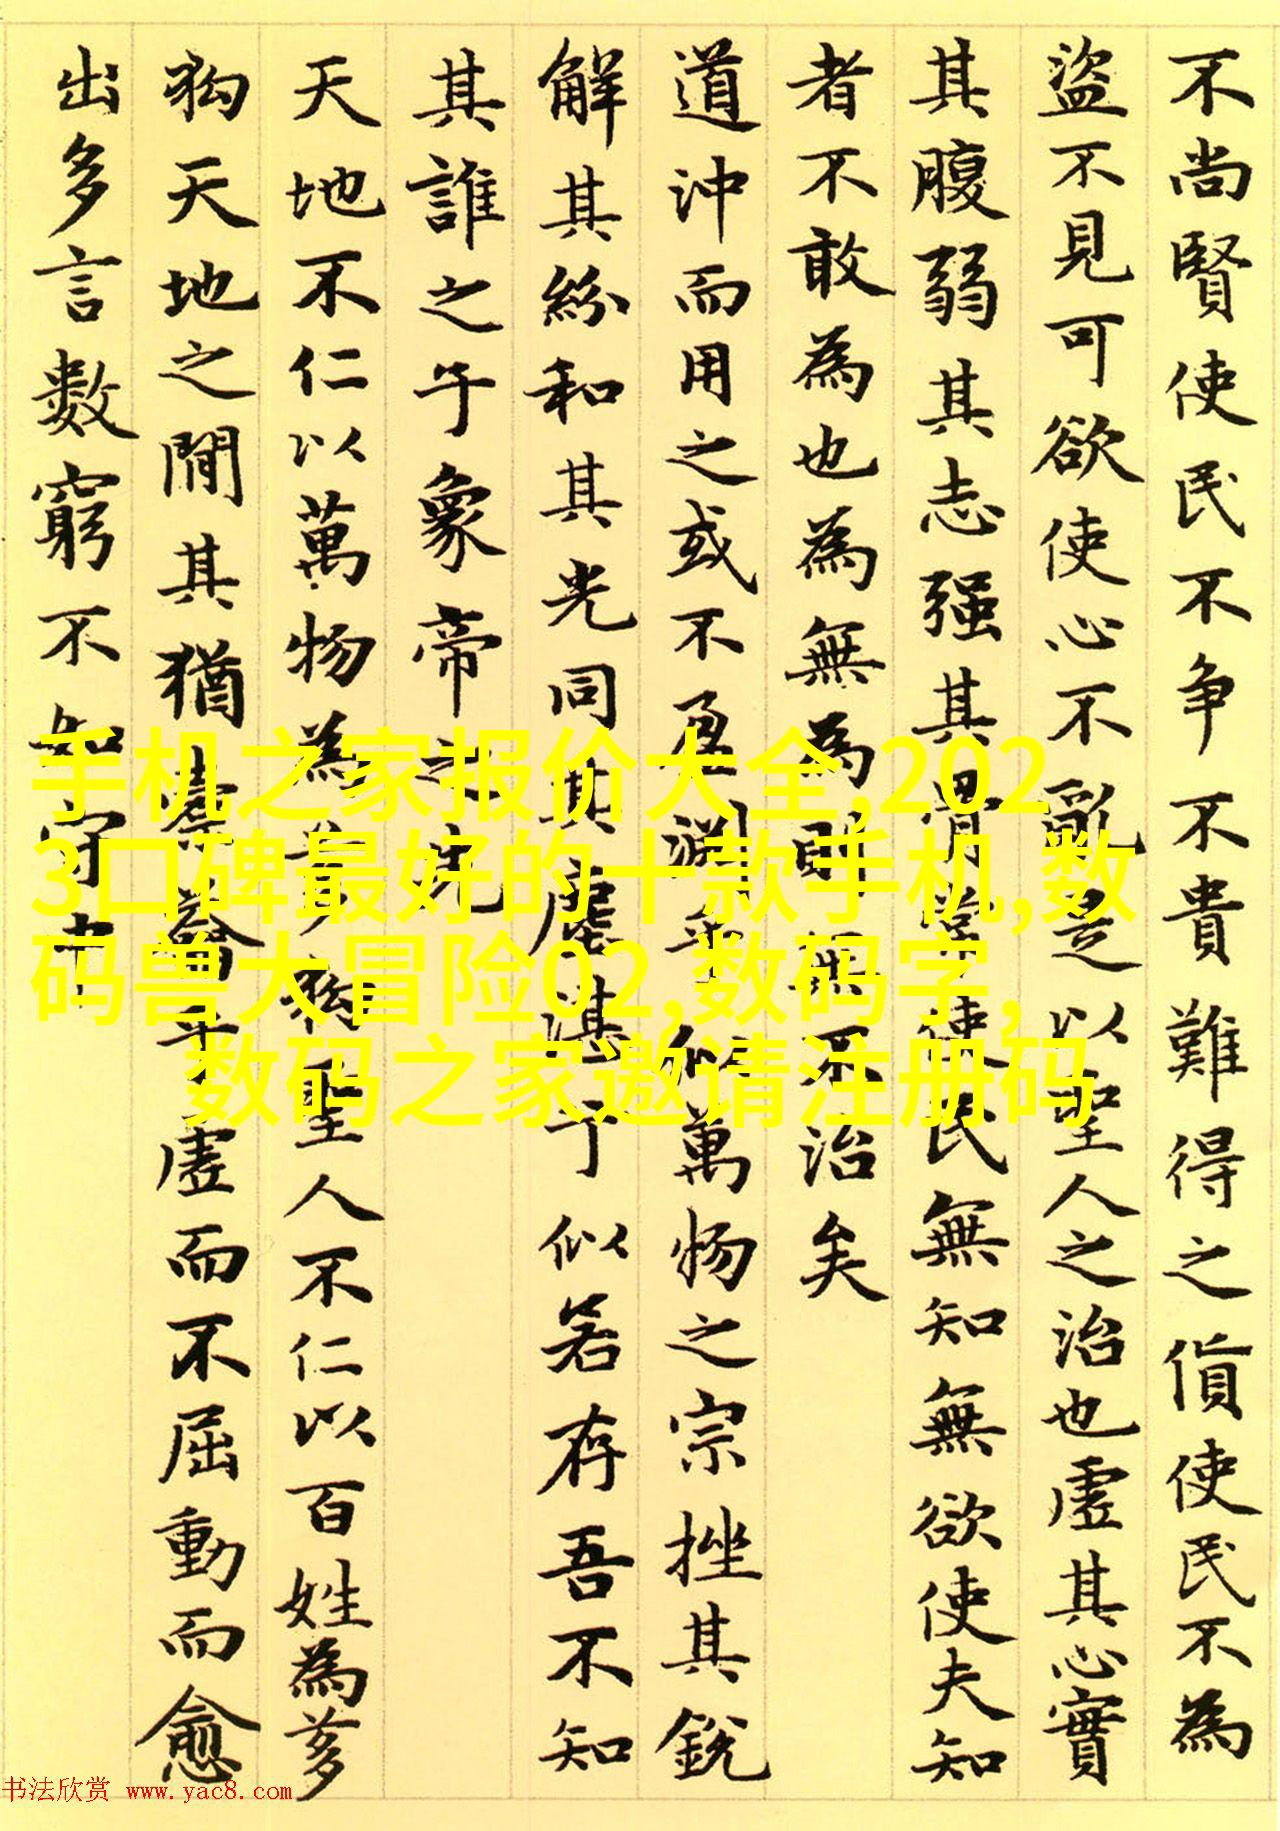 不尚賢使民不争不貴難得之貨使民不為
盜不見可欲使心不亂是以聖人之治也虛其心實
其腹弱其志强其骨常使民無知無欲使夫知
者不敢為也為無為則無不治矣
道沖而用之或不盈淵乎似萬物之宗挫其銳
解其紛和其光同其塵湛乎似若存吾不知
其誰之子象帝之先
天地不仁以萬物為芻狗聖人不仁以百姓為芻
狗天地之間其猶橐籥乎虛而不屈動而愈
出多言數窮不如守中
手机之家报价大全,202
3口碑最好的十款手机,数
码兽大冒险02,数码字,
数码之家邀请注册码
书法欣赏 www.yac8.com